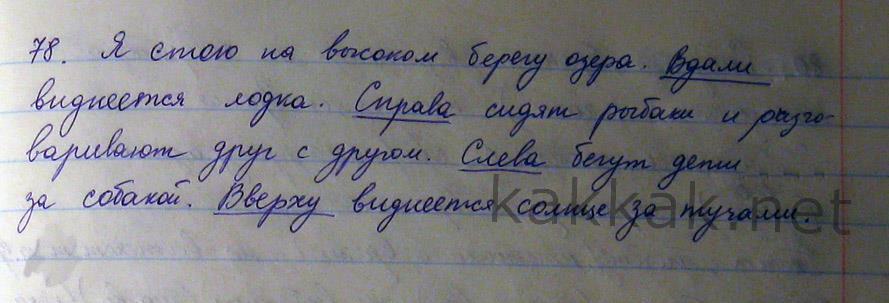 78. Я стою на высоком берегу озера. Вдали
виднеется лодка. Справа сидят рыбаки и разго-
варивают друг с другом. Слева бегут дети
за собакой. Вверху виднеется солнце за тучами.
kakkak.net